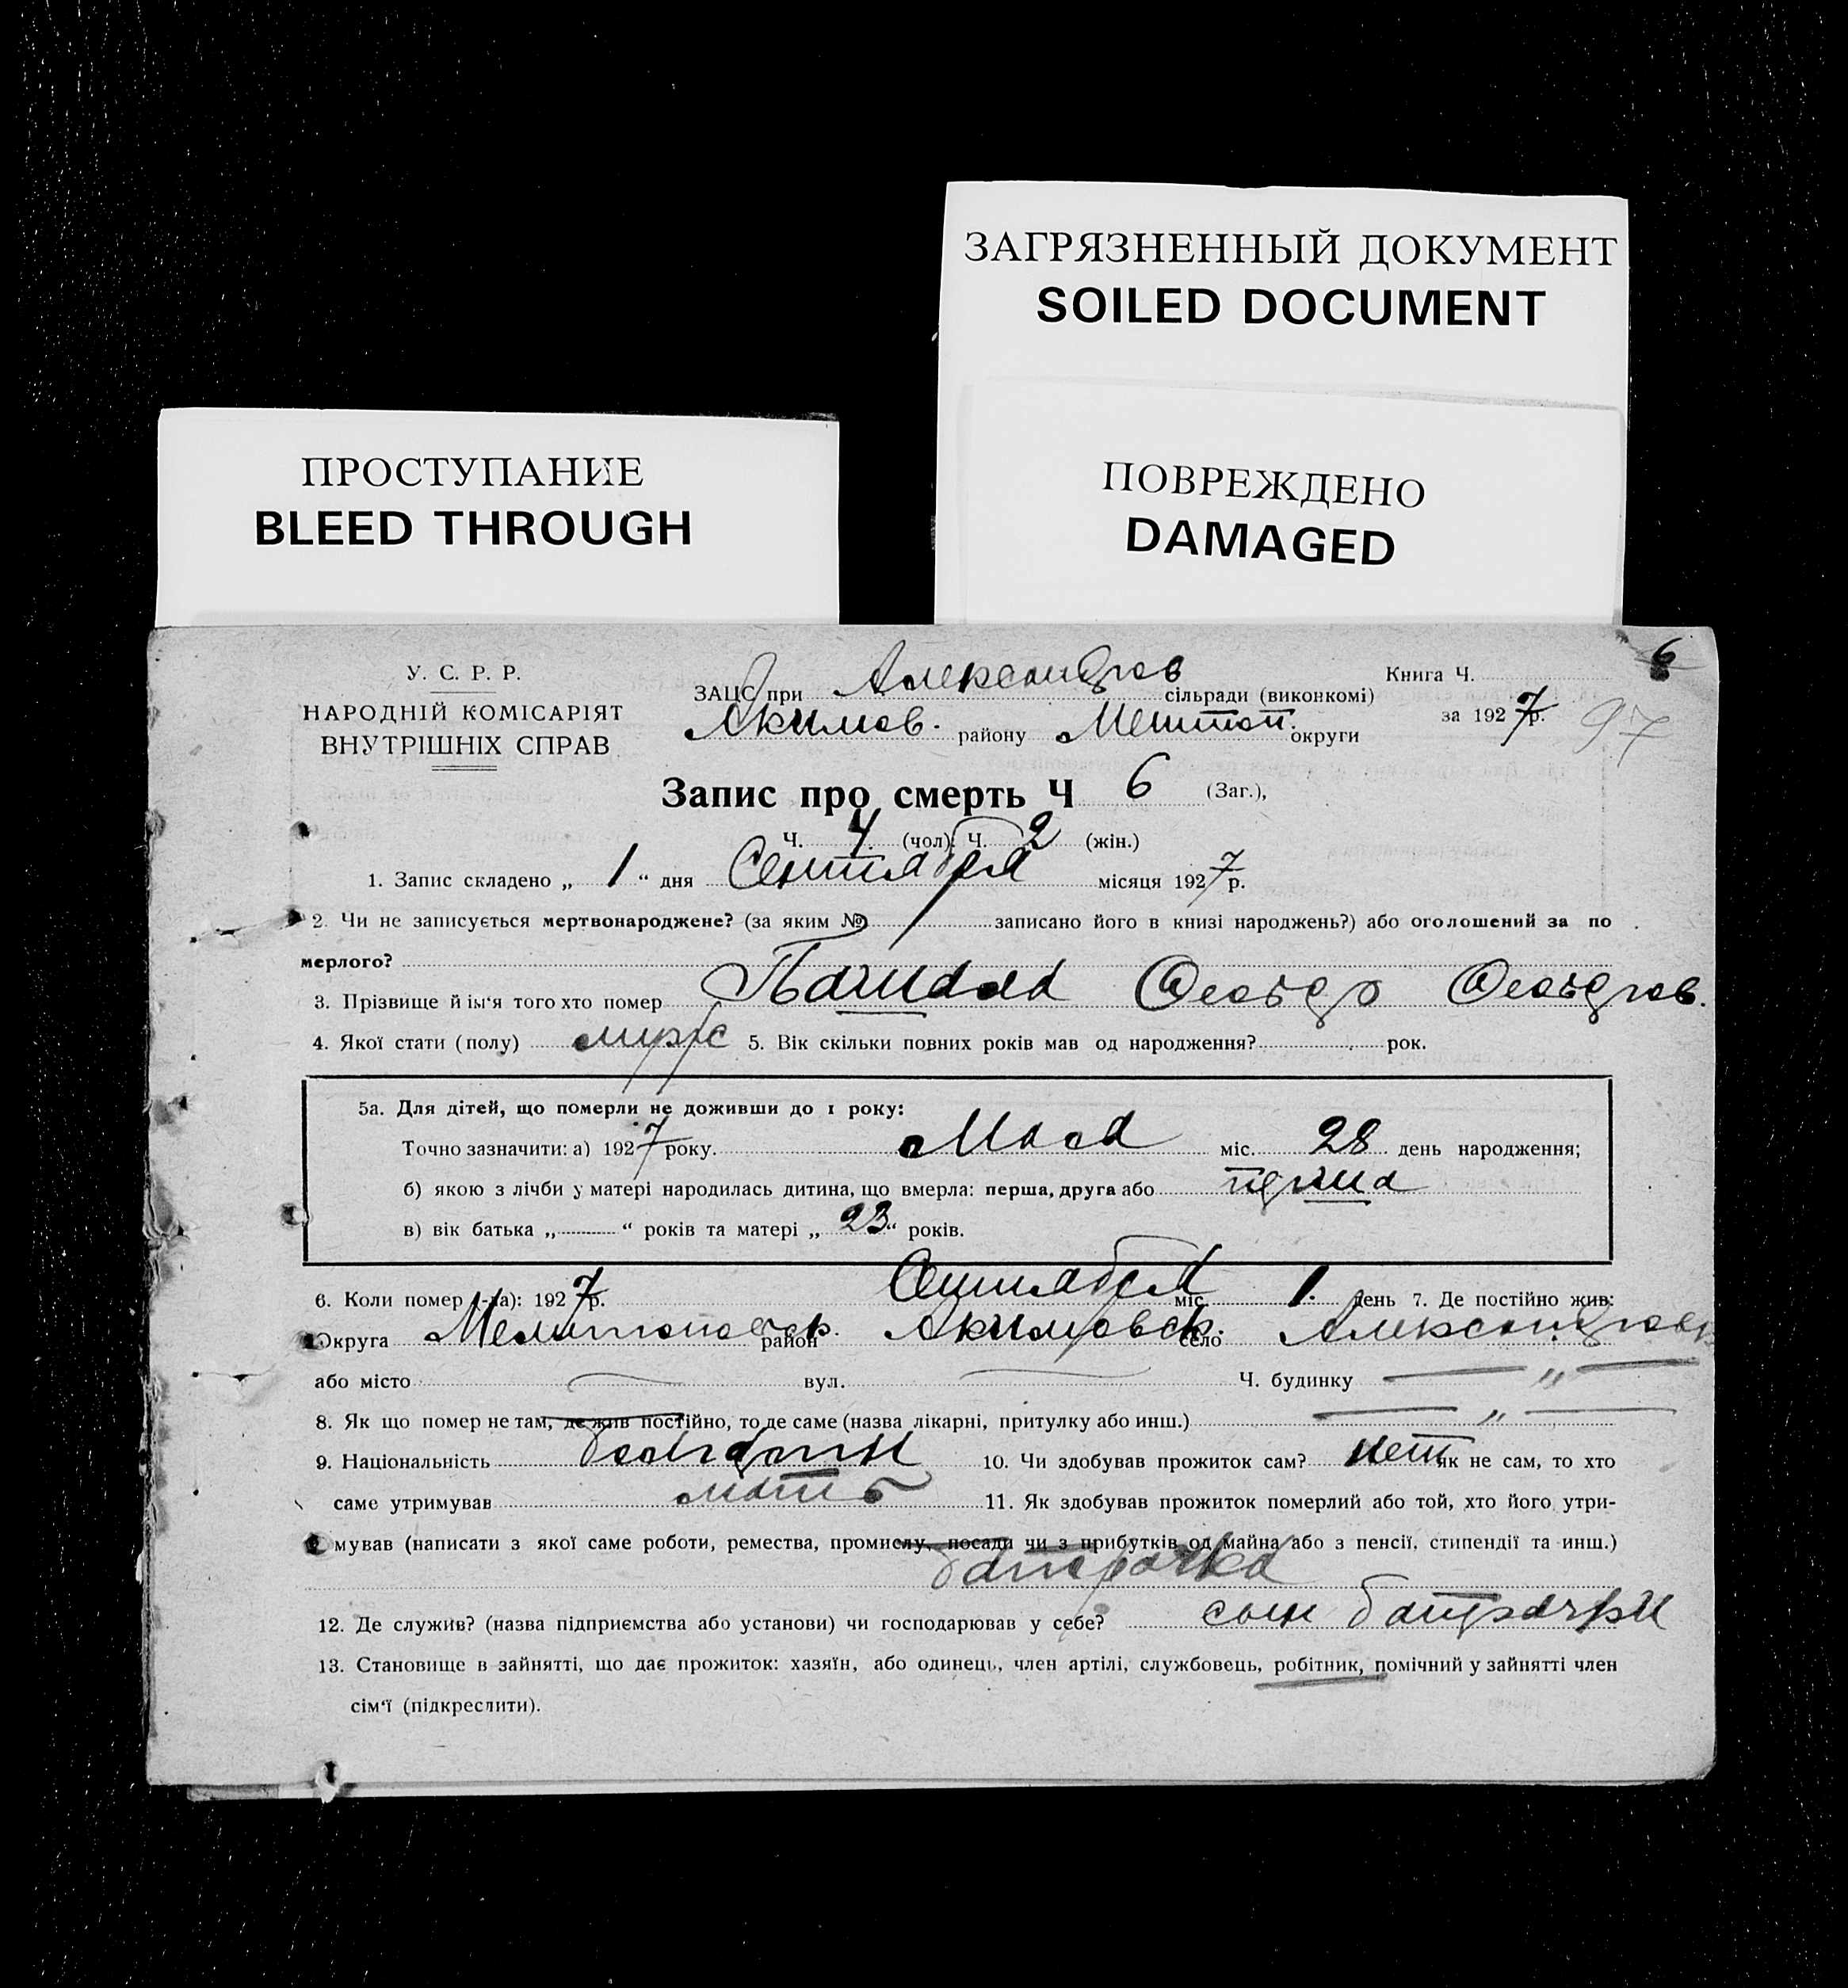 ЗАГРЯЗНЕННЫЙ ДОКУМЕНТ
SOILED DOCUMENT
ПРОСТУПАНИЕ
BLEED THROUGH
ПОВРЕЖДЕНО
DAMAGED
6
У. С. Р. Р.
НАРОДНІЙ КОМІСАРІЯТ
ВНУТРІШНІХ СПРАВ
ЗАЦС при Александров сільради (виконкомі)
Акимов. району округи
Книга Ч.
за 1927 р. 97
Запис про смерть Ч 6 (Заг.),
Ч. 4 (чол). Ч. 2 (жін.)
1. Запис складено „ 1 “ дня Сентября місяця 1927 р.
2. Чи не записується мертвонароджене? (за яким № записано його в книзі народжень?) або оголошений за по
мерлого?
3. Прізвище й ім'я того хто помер
4. Якої стати (полу) муж 5. Вік скільки повних років мав од народження? рок.
5а. Для дітей, що померли не доживши до 1 року:
Точно зазначити: а) 1927 року. Мая міс. 28 день народження;
б) якою з лічби у матері народилась дитина, що вмерла: перша, друга або
в) вік батька „ “ років та матері „ 23 “ років.
6. Коли помер (-ла): 1927 р. Сентября міс. 1. день 7. Де постійно жив:
Округа Мелитопольск. район Акимовск. село
або місто вул. Ч. будинку — „ —
8. Як що помер не там, де жив постійно, то де саме (назва лікарні, притулку або инш.) — „ —
9. Національність 10. Чи здобував прожиток сам? нет як не сам, то хто
саме утримував мать 11. Як здобував прожиток померлий або той, хто його утри-
мував (написати з якої саме роботи, ремества, промислу, посади чи з прибутків од майна або з пенсії, стипендії та инш.)
батрачка
12. Де служив? (назва підприємства або установи) чи господарював у себе? сын батрачки
13. Становище в зайнятті, що дає прожиток: хазяїн, або одинець, член артілі, службовець, робітник, помічний у зайнятті член
сім'ї (підкреслити).